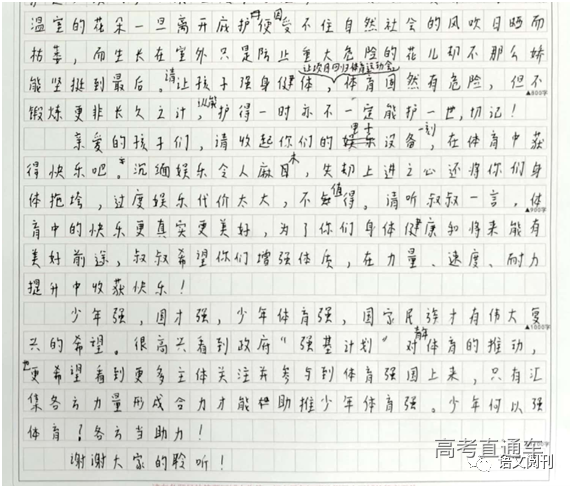 温室的花朵一旦离开庇护便因受不住自然社会的风吹日晒而
枯萎，而生长在室外只是防止重大危险的花儿却不那么娇
让项目回归体育运动会，
能坚挺到最后。请让孩子强身健体，体育固然有危险，但不
▲800字
锻炼更非长久之计，纵然护得一时亦不一定能护一世，切记！
亲爱的孩子们，请收起你们的电子设备一刻，在体育中获
得快乐吧。沉湎娱乐令人麻木，失却上进之心还将你们身
体拖垮，过度娱乐代价太大，不值得。请听叔叔一言，体
▲900字
育中的快乐更真实更美好，为了你们身体健康和将来能有
美好前途，叔叔希望你们增强体质，在力量、速度、耐力
提升中收获快乐！
少年强，国才强，少年体育强，国家民族才有伟大复
▲1000字
兴的希望。很高兴看到政府“强基计划”对体育的推动，
也更希望看到更多主体关注并参与到体育强国上来，只有汇
集各方力量形成合力才能助推少年体育强。少年何以强
体育？各方当助力！
谢谢大家的聆听！
高考直通车
语文阅刊